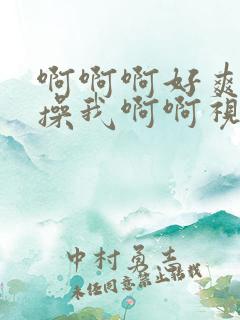 啊啊啊好爽
操我啊啊視
中村勇吉
未经同意禁止转载